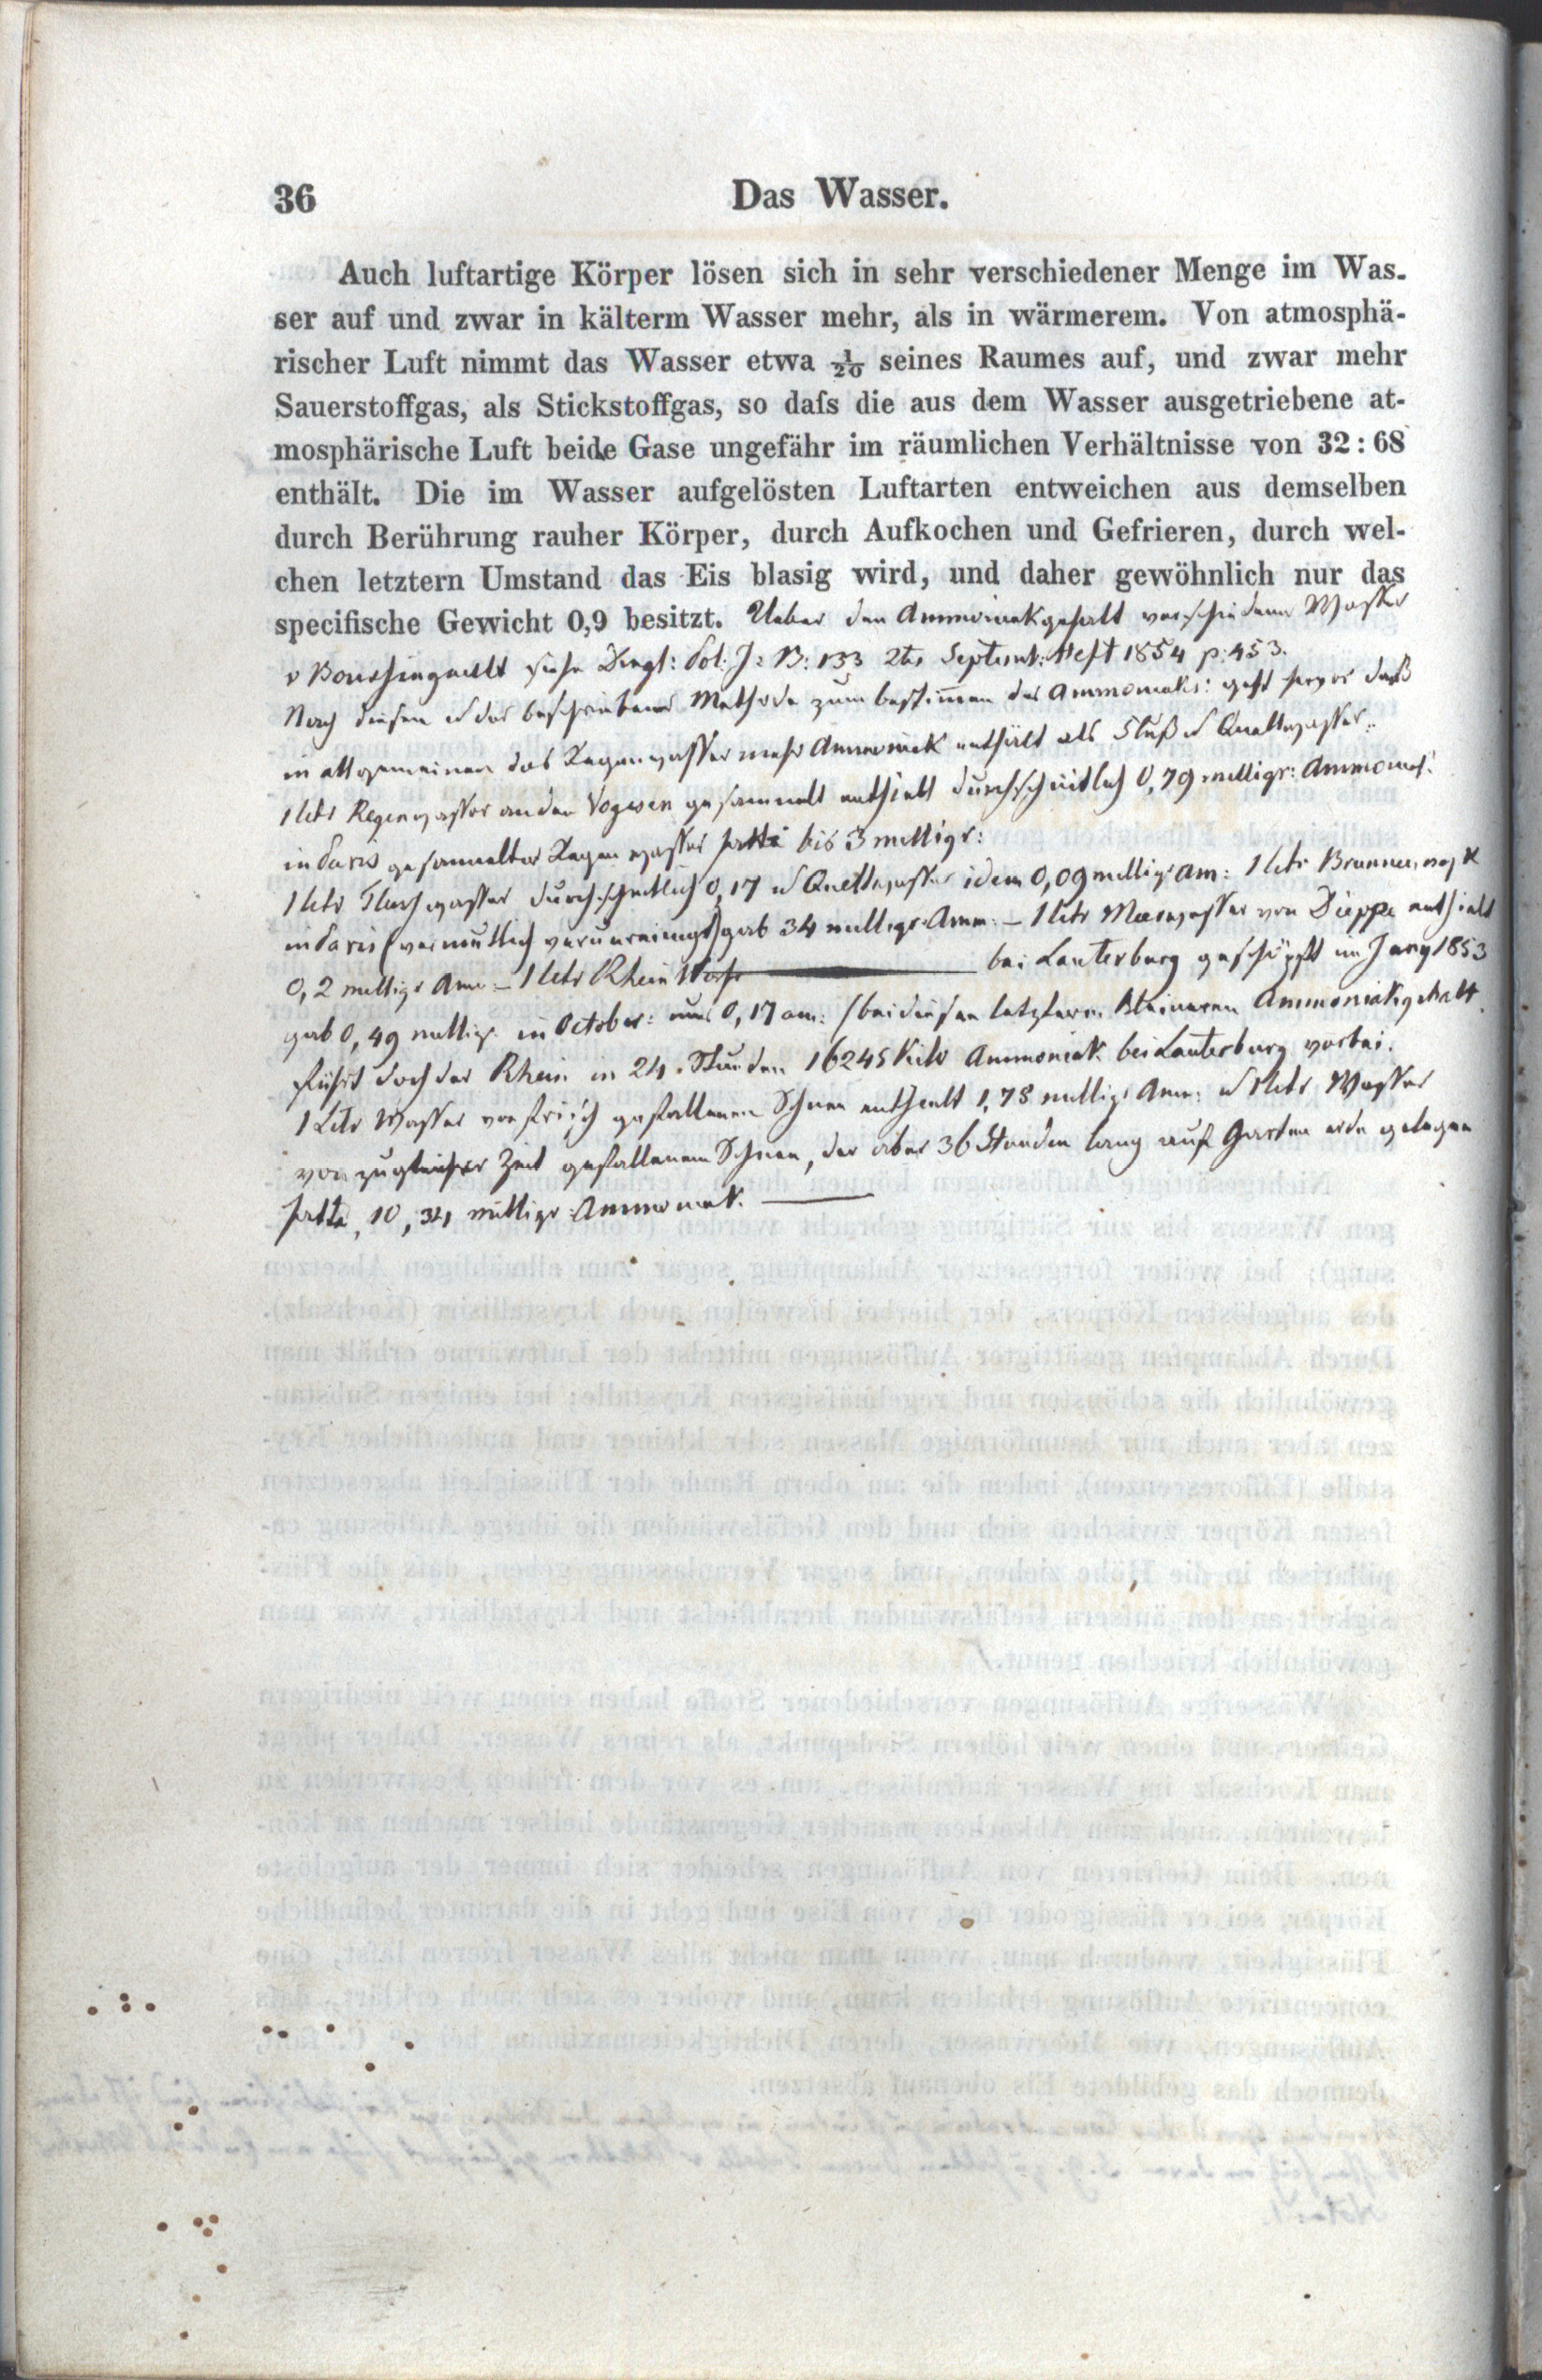 36
Das Wasser.
Auch luftartige Körper lösen sich in sehr verschiedener Menge im Was-
ser auf und zwar in kälterm Wasser mehr, als in wärmerem. Von atmosphä-
rischer Luft nimmt das Wasser etwa 1/20 seines Raumes auf, und zwar mehr
Sauerstoffgas, als Stickstoffgas, so daſs die aus dem Wasser ausgetriebene at-
mosphärische Luft beide Gase ungefähr im räumlichen Verhältnisse von 32:68
enthält. Die im Wasser aufgelösten Luftarten entweichen aus demselben
durch Berührung rauher Körper, durch Aufkochen und Gefrieren, durch wel-
chen letztern Umstand das Eis blasig wird, und daher gewöhnlich nur das
specifische Gewicht 0,9 besitzt. Ueber den Ammoniakgehalt verschiedener Wasser
v Boussingault siehe Dingl: Pol: J: B: 133 2tes Septemb: Heft 1854 p: 453.
Nach diesen u der beschriebenen Methode zum bestimmen des Ammoniaks: geht hervor daß
im allgemeinen das Regenwasser mehr Ammoniak enthält als Fluß u Quellwasser.
1 litr Regenwasser an den Vogesen gesammelt enthielt durchschnittlich 0,79 milligr: Ammoniak:
in Paris gesammeltes Regenwasser hatte bis 3 milligr:
1 litr Flusswasser durchschnittlich 0,17 u Quellwasser idem 0,09 milligr am: 1 litr Brunnen
in Paris (vermutlich verunreinigt) gab 34 milligr: Amm: – 1 litr Meerwasser von Dieppe enthielt
0,2 milligr Amm – 1 litr Rhein Wasser bei Lauterburg geschöpft im Juny 1853
gab 0,49 milligr. im October: nur 0,17 am: (bei diesem letztern kleineren Ammoniakgehalt
führt doch der Rhein in 24 Stunden 16245 Kilo Ammoniak bei Lauterburg vorbei.
1 Litr Wasser von frisch gefallenen Schnee enthielt 1,78 milligr Amm: u 1 litr Wasser
von zugleicher Zeit gefallenem Schnee, der aber 36 Stunden lang auf Garten erde gelegen
hatte, 10,34 milligr Ammoniak.